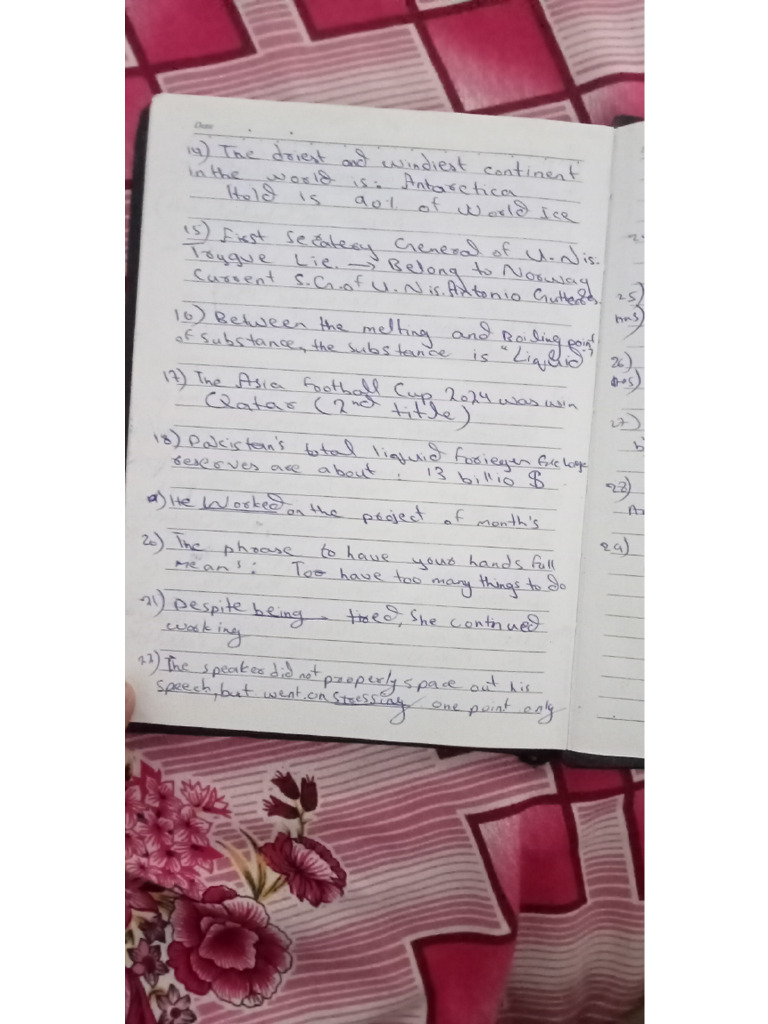 Date
14) The driest and windiest continent
in the world is: Antarctica
Hold is 90% of World Ice
15) First Secatery General of U.N is:
Trygue Lie. → Belong to Norway
Current S.G. of U.N is. Antonio Gutteres.
16) Between the melting and Boiling point
of substance, the substance is "Liquid"
17) The Asia Football Cup 2024 was win
Qatar (2nd title)
18) Pakistan's total liquid
reserves are about: 13 billio $
9) He Worked on the project of month's
20) The phrase to have your hands full
means: Too have too many things to do
21) Despite being tired, She contnued
working
22) The speaker did not properly space out his
speech, but went on stressing one point only
25)
Ans)
26)
Ans)
27)
b
28)
A
29)